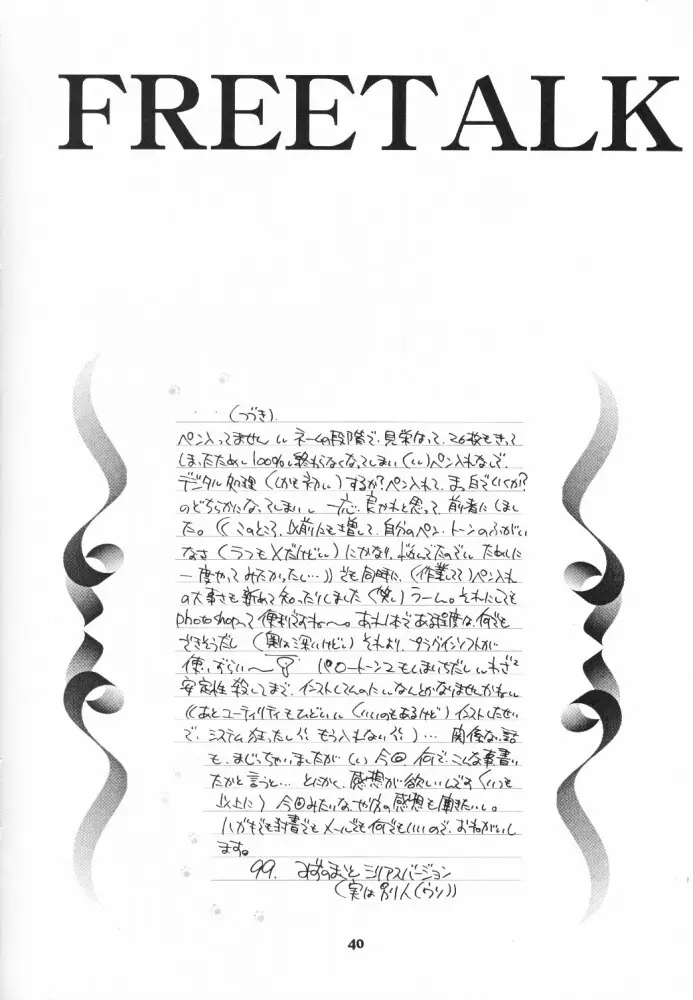 FREETALK
・・(つづき).
ペン入ってません いネームの段階で、見栄はって、26枚もきって
しまったため 100%終わらなくなってしまい(い)ペン入れなしで、
デジタル処理(しかも初)するか?ペン入れて、まっ白でいくか?
のどちらかになってしまい 一応、良かれと思って、前者にしまし
た。((このところ、以前にも増して、自分のペン・トーンのふがい
なさ(うつもメだけど)にかなり、悩んでたので ために
一度やってみたかったし…))でも同時に、(作業してて)ペン入れ
の大事さも新めて知ったりしました(笑)うーん。それにしても
photoshopって便利ですね〜。あれ1本である程度は何でも
できそうだし(奥は深いけど)それより、プラグインソフトが
使いづらい〜 パワートーン2もしまいちだし わざと
安定性殺してまで、インストしてんのに なんとかなりませんかね
((あとユーティリティもひどい(いいのもあるけど)インストしたせい
で、システム狂ったし もう入れない))…関係ない話
も、まじっちゃいましたが(い)今回何で、こんな事書い
たかと言うと…とにかく、感想が欲しいんです(いつも
以上に)今回みたいなやり方の感想も聞きたいし。
ハガキでも封書でもメールでも何でもいいので、おねがいし
ます。
99. みずのまこと シリアスバージョン
(実は別人(ウソ))
40